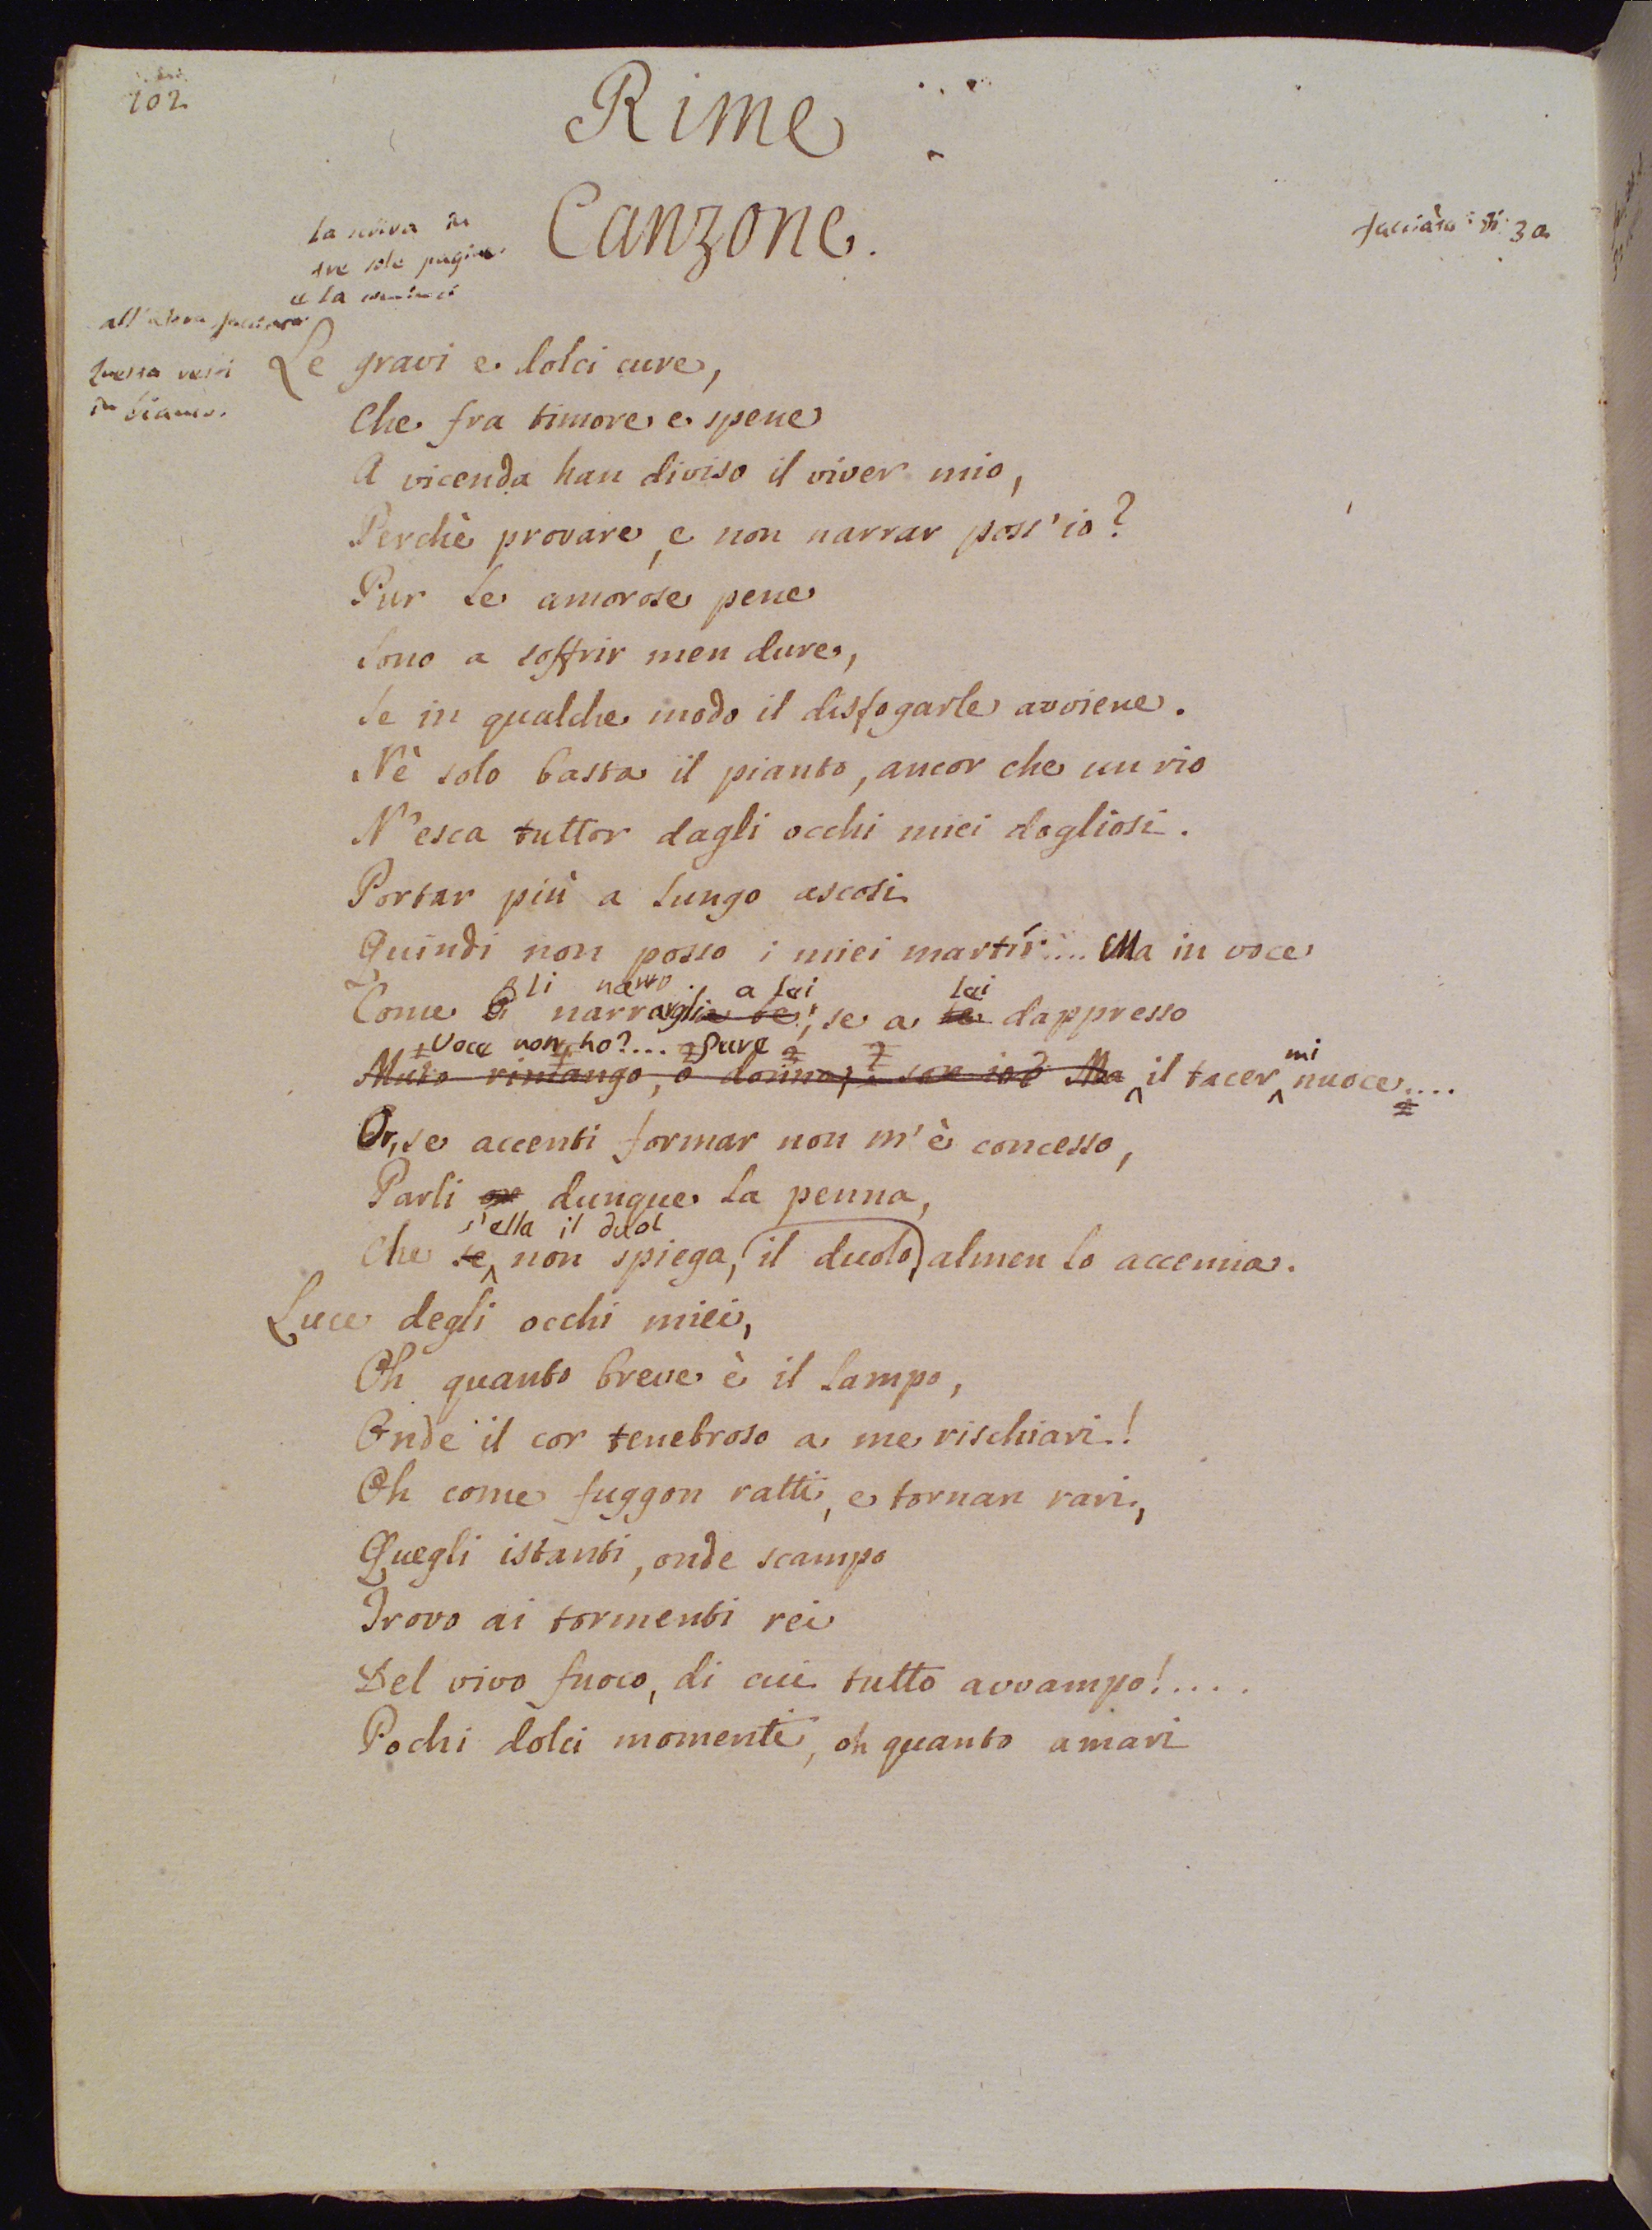 102
Rime
Canzone.
La scriva in
tre sole pagine
e la cominci
all'altra facciata
Questa resti
in bianco.
facciata di 30
Le gravi e dolci cure,
Che fra timore e spene
A vicenda han diviso il viver mio,
Perchè provare, e non narrar poss'io?
Pur le amorose pene
Sono a soffrir men dure,
Se in qualche modo il disfogarle avviene.
Nè solo basta il pianto, ancor che un rio
N'esca tuttor dagli occhi miei dogliosi.
Portar più a lungo ascosi
Quindi non posso i miei martír.... Ma in voce
li narro a lei lei
Come narrargli a te, se a te dappresso
Voce non ho?... Pure mi
Muto rimango, o donna, Ma il tacer nuoce....
Or, se accenti formar non m'è concesso,
Parli dunque la penna,
s'ella il duol
Che se non spiega, (il duolo) almen lo accenna.
Luce degli occhi miei,
Oh quanto breve è il lampo,
Onde il cor tenebroso a me rischiari!
Oh come fuggon ratti, e tornan rari,
Quegli istanti, onde scampo
Trovo ai tormenti rei
Del vivo fuoco, di cui tutto avvampo!....
Pochi dolci momenti, oh quanto amari